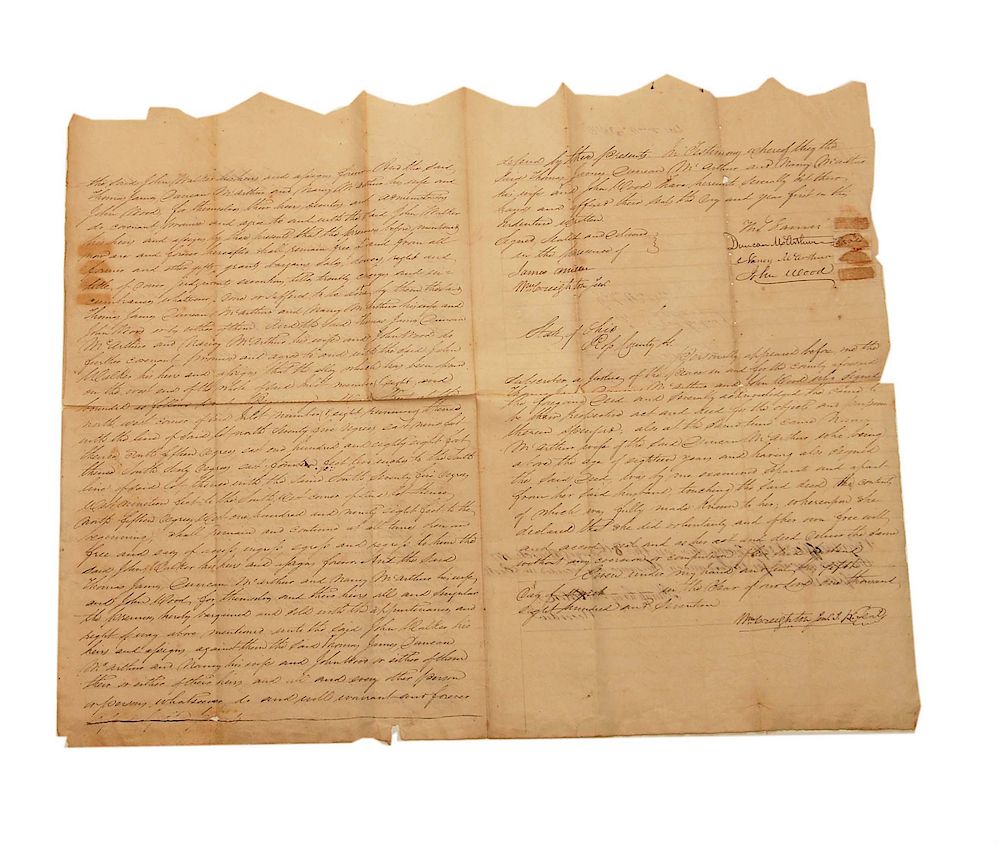 the said John Walker his heirs and assigns forever And the said
Thomas James Duncan McArthur and Nancy McArthur his wife and
John Wood for themselves their heirs executors and administrators
do covenant promise and agree to and with the said John Walker
his heirs and assigns by these presents that the premises before mentioned
now are and forever hereafter shall remain free of and from all
former and other gifts grants bargains sales dowers right and
title of dower judgments executions titles troubles charges and in-
cumbrances whatsoever done or suffered to be done by them the said
Thomas James Duncan McArthur and Nancy McArthur his wife and
John Wood or by either of them And the said Thomas James Duncan
McArthur and Nancy McArthur his wife and John Wood do
further covenant promise and agree to and with the said John
Walker his heirs and assigns that the alley which has been
on the west end of the whole of said lot number eight and
bounded as follows
north west corner of said lot number eight running thence
with the line of said lot north seventy five degrees east nine feet
thence north fifteen degrees east one hundred and eighty eight feet
thence South Sixty degrees east feet inches to the South
line of said lot thence with the same South Seventy five degrees
West nineteen feet to the South West corner of said lot thence
North fifteen degrees West one hundred and ninety eight feet to the
beginning, shall remain and continue at all times forever
free and easy of access ingress egress and regress to him the
said John Walker his heirs and assigns forever And the said
Thomas James, Duncan McArthur and Nancy McArthur his wife,
and John Wood, for themselves and their heirs all and singular
the premises hereby bargained and sold with the appurtenances and
right of way above mentioned unto the said John Walker his
heirs and assigns against them the said Thomas James Duncan
McArthur and Nancy his wife and John Wood or either of them
their or either of their heirs and all and every other person
or persons whatsoever do and will warrant and forever
defend by these presents In Testimony whereof they the
said Thomas James Duncan McArthur and Nancy McArthur
his wife and John Wood have hereunto severally set their
hands and affixed their seals the day and year first in this
Indenture written
Signed Sealed and Delivered
in the presence of
James Miller
Wm Creighton Jun
Thos James
Duncan McArthur
Nancy McArthur
John Wood
State of Ohio
Ross County Sc
Personally appeared before me the
subscriber a Justice of the Peace in and for the County aforesaid
the Duncan McArthur and John Wood who signed
the foregoing Deed and severally acknowledged the same
to be their voluntary act and deed for the objects and purposes
therein specified, also at the same time came Nancy
McArthur wife of the said Duncan McArthur who being
above the age of eighteen years and having also signed
the said Deed, was by me examined separate and apart
from her said husband touching the said deed the contents
of which was fully made known to her, whereupon she
declared that she did voluntarily and of her own free will
seal and as her act and deed deliver the same
without any coercion or compulsion
Given under my hand and seal this
day in the Year of our Lord one thousand
eight hundred and seventeen
Wm Creighton Jun J. P. Seal